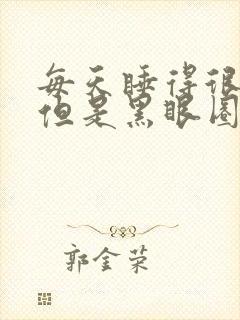 每天睡得很
但是黑眼圈
郭金荣